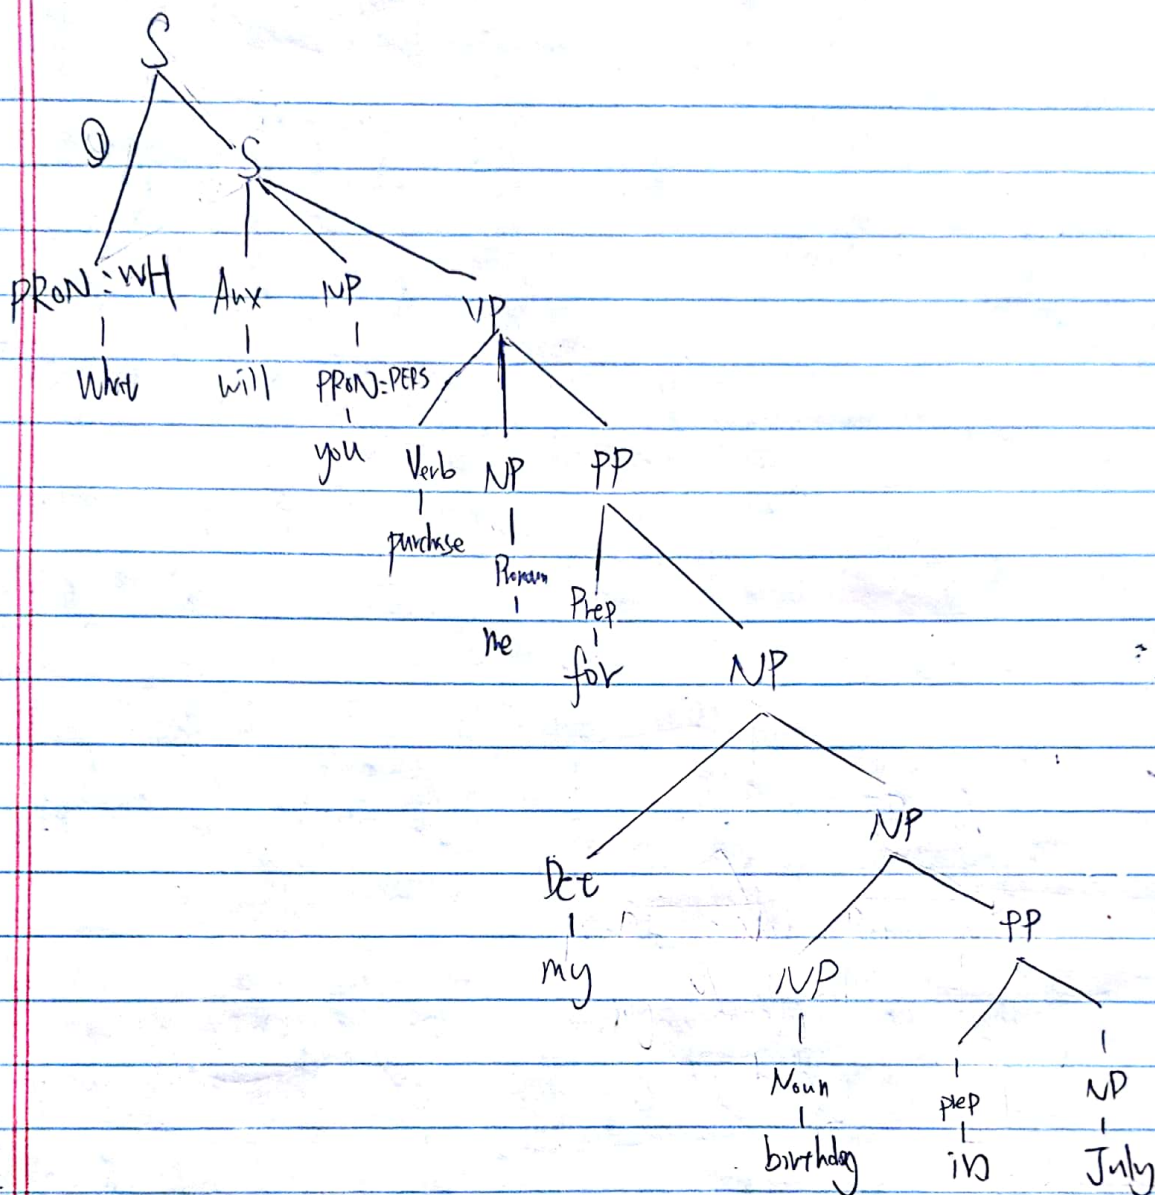 S
① S
PRON:WH Aux NP VP
What will PRON:PERS
you Verb NP PP
purchase Pronoun Prep
me for NP
NP
Det PP
my NP
Noun prep NP
birthday in July